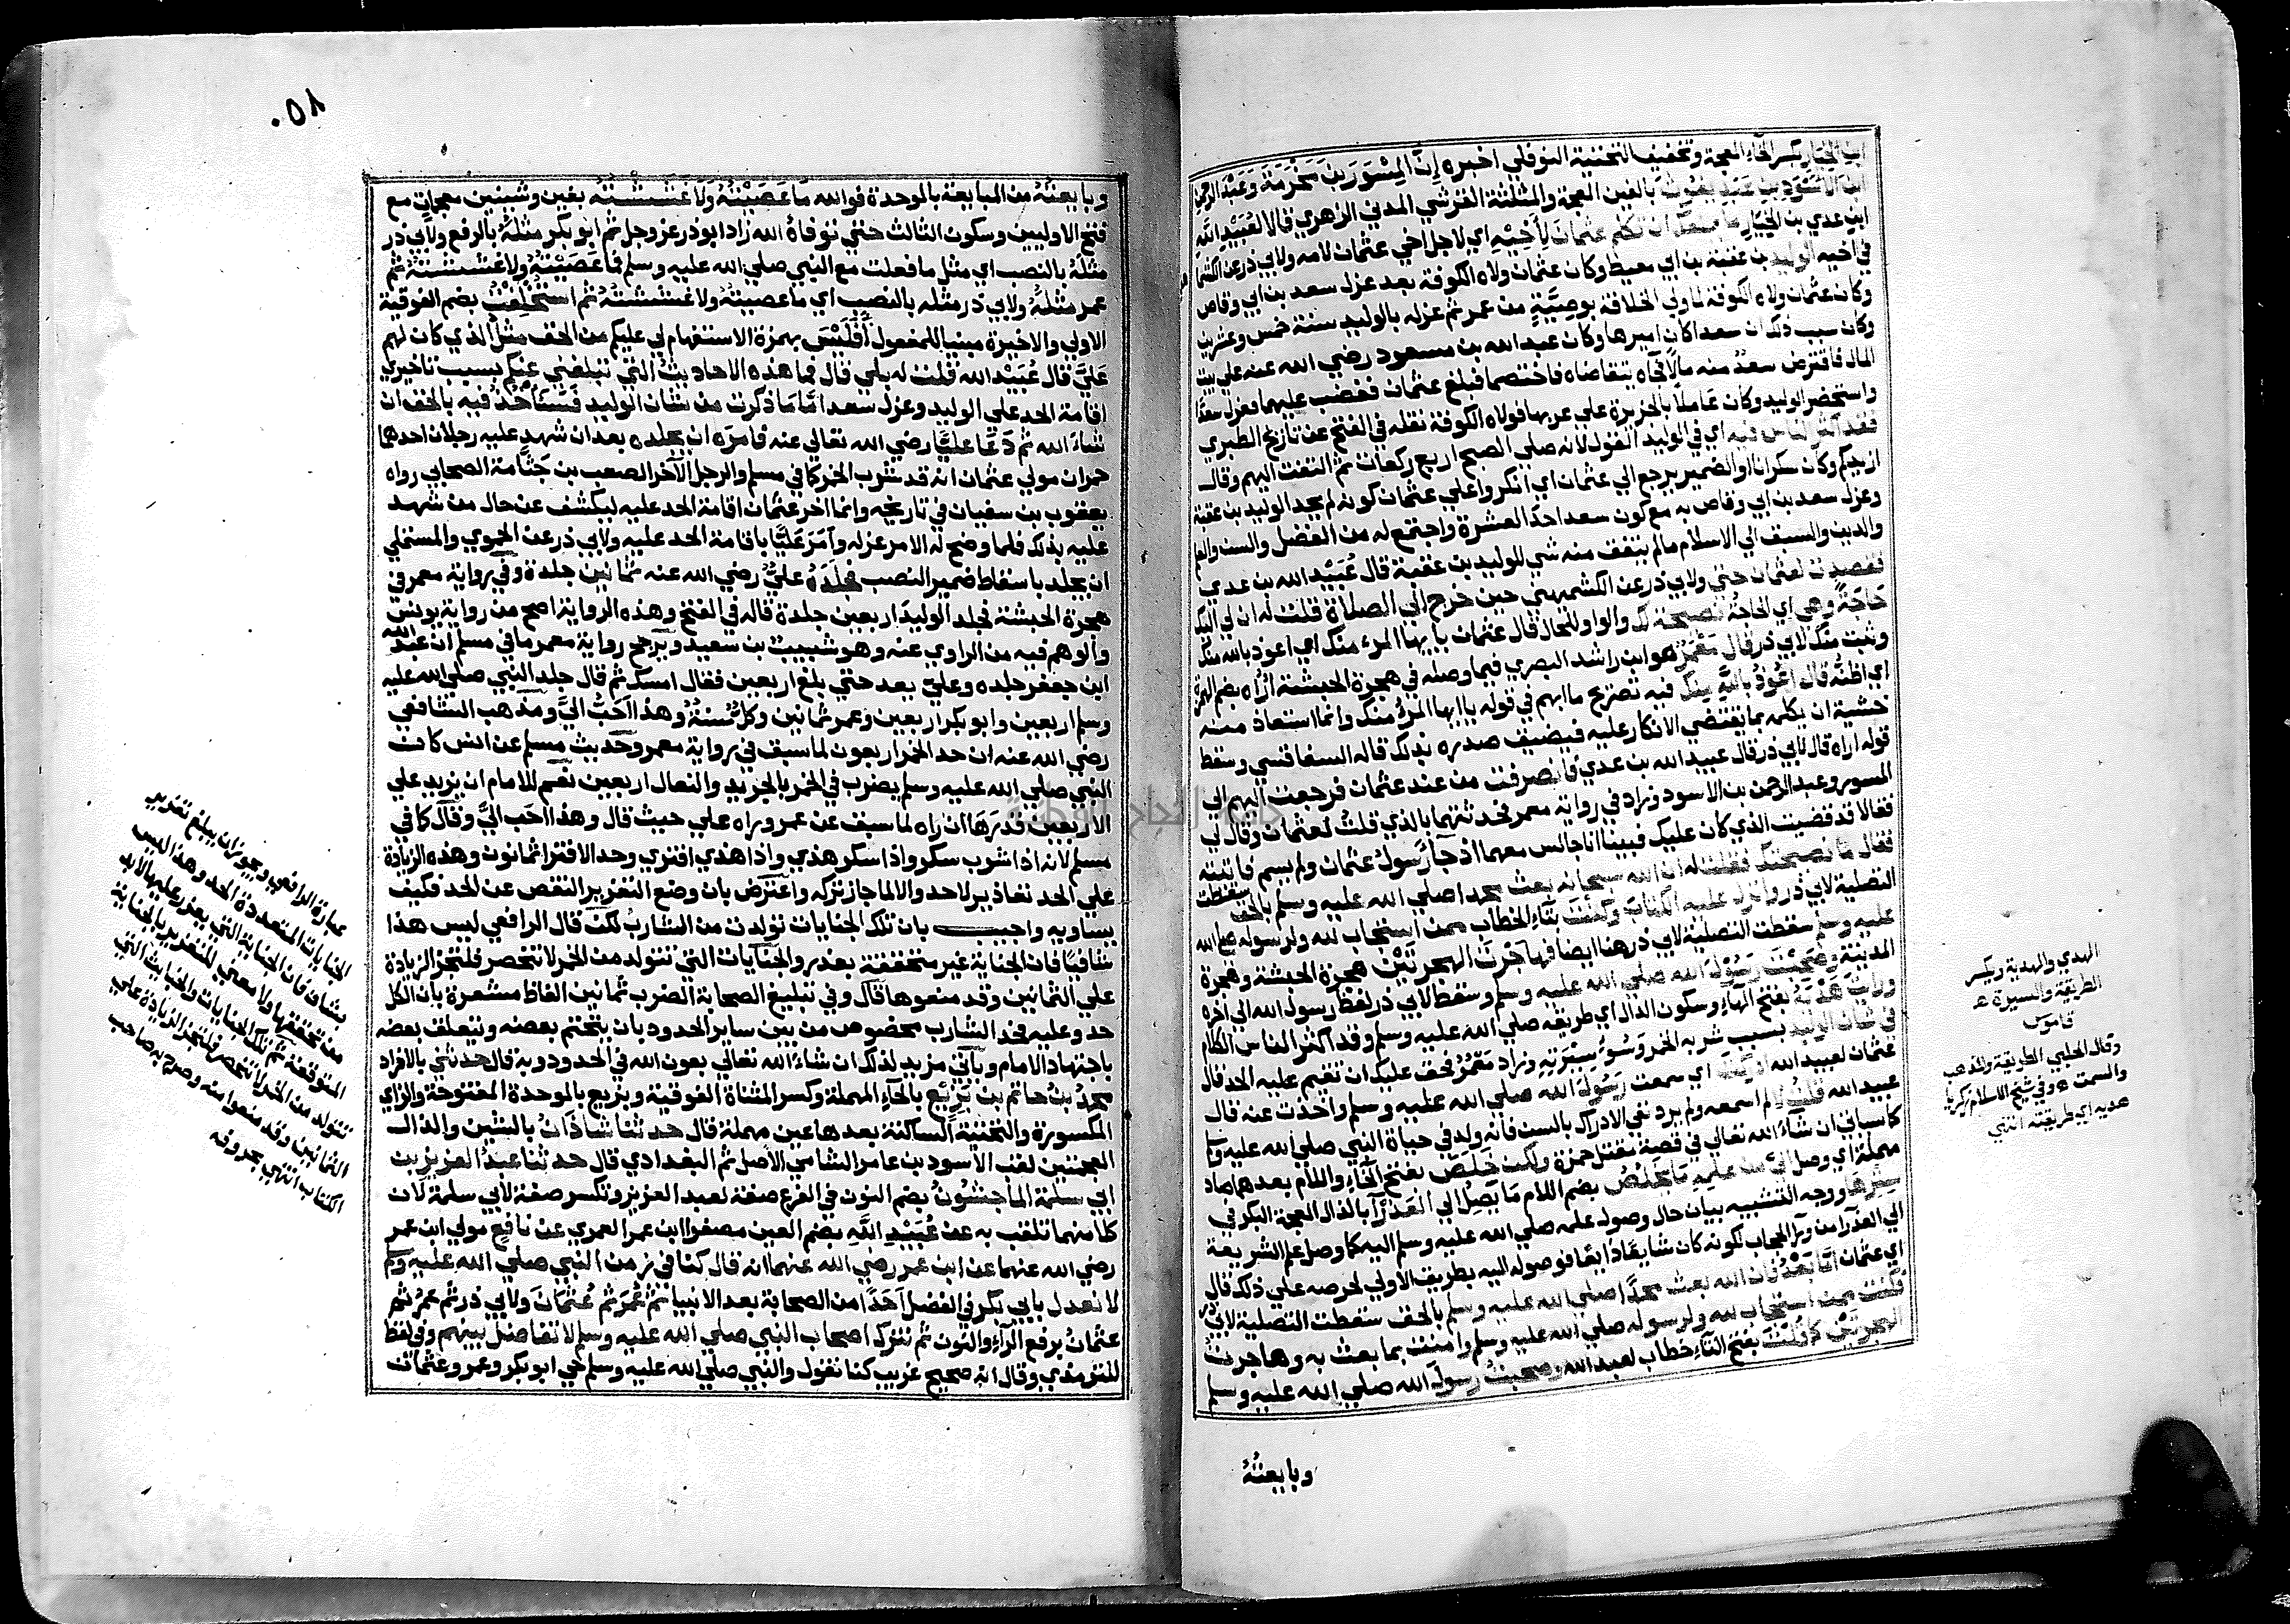 ابن الخيار بكسر الخاء المعجمة وتخفيف التحتية النوفلي اخبره ان المسور بن مخرمة وعبد الرحمن
ابن الاسود بن عبد يغوث بالغين المعجمة والمثلثة القرشي المدني الزهري قالا لعبيد الله
ابن عدي بن الخيار ما يمنعك ان تكلم عثمان لاخيه اي لاجل اخي عثمان لامه ولابي ذر عن الكشميهني
في اخيه الوليد بن عقبة بن ابي معيط وكان عثمان ولاه الكوفة بعد عزل سعد بن ابي وقاص
وكان عثمان ولاه الكوفة لما ولي الخلافة بوصية من عمر ثم عزله بالوليد سنة خمس وعشرين
وكان سبب ذلك ان سعدا كان اميرها وكان عبد الله بن مسعود رضي الله عنه علي بيت
المال فاقترض سعد منه مالا فجاه يتقاضاه فاختصما فبلغ عثمان فغضب عليهما فعزل سعدا
واستحضر الوليد وكان عاملا بالجزيرة علي عربها فولاه الكوفة نقله في الفتح عن تاريخ الطبري
فقد اكثر الناس فيه اي في الوليد القول لانه صلي الصبح اربع ركعات ثم التفت اليهم وقال
ازيدكم وكان سكرانا او الضمير يرجع الي عثمان اي انكروا علي عثمان كونه لم يحد الوليد بن عقبة
وعزل سعد بن ابي وقاص به مع كون سعد احد العشرة واجتمع له من الفضل والسن والعلم
والدين والسبق الي الاسلام ما لم يتفق منه شي للوليد بن عقبة قال عبيد الله بن عدي
فقصدت لعثمان حتي ولابي ذر عن الكشميهني حين خرج الي الصلاة قلت له ان لي اليك
حاجة وهي اي الحاجة نصيحة لك والواو للحال قال عثمان يا ايها المرء منك اي اعوذ بالله منك
وثبت منك لابي ذر قال معمر هو ابن راشد البصري فيما وصله في هجرة الحبشة اراه بضم الهمزة
اي اظنه قال اعوذ بالله منك فيه تصريح ما ابهم في قوله يا ايها المرء منك وانما استعاذ منه
خشية ان يكلمه بما يقتضي الانكار عليه فيضيق صدره بذلك قاله السفاقسي وسقط
قوله اراه قال لابي ذر قال عبيد الله بن عدي فانصرفت من عند عثمان فرجعت اليهم الي
المسور وعبد الرحمن بن الاسود وزاد في رواية معمر فحدثتهما بالذي قلت لعثمان وقال لي
فقالا قد قضيت الذي كان عليك فبينا انا جالس معهما اذ جا رسول عثمان ولم يسم فاتيته
فقال ما نصيحتك فقلت له ان الله سبحانه بعث محمدا صلي الله عليه وسلم بالحق سقطت
التصلية لابي ذر وانزل عليه الكتاب وكنت بتاء الخطاب ممن استجاب لله ولرسوله صلي الله
عليه وسلم سقطت التصلية لابي ذر هنا ايضا فهاجرت الهجرتين هجرة الحبشة وهجرة
المدينة وصحبت رسول الله صلي الله عليه وسلم وسقط لابي ذر لفظ رسول الله الي اخره
ورايت هديه بفتح الهاء وسكون الدال اي طريقه صلي الله عليه وسلم وقد اكثر الناس الكلام
في شان الوليد بسبب شربه الخمر وسوء سيرته وزاد معمر فحق عليك ان تقيم عليه الحد قال
عثمان لعبيد الله ادركت اي سمعت رسول الله صلي الله عليه وسلم واخذت عنه قال
عبيد الله قلت لا لم اسمعه ولم يرد نفي الادراك بالسن فانه ولد في حياة النبي صلي الله عليه وسلم
كما سياتي ان شاء الله تعالي في قصة مقتل حمزة ولكن خلص بفتح الخاء واللام بعدهما صاد
مهملة اي وصل الي من علمه ما يخلص بضم اللام ما يصل الي العذراء بالذال المعجمة البكر في
سترها ووجه التشبيه بيان حال وصول علمه صلي الله عليه وسلم اليه كما وصل علم الشريعة
الي العذرا من ورا الحجاب لكونه كان شايعا ذايعا فوصوله اليه بطريق الاولي لحرصه علي ذلك قال
اي عثمان اما بعد فان الله بعث محمدا صلي الله عليه وسلم بالحق سقطت التصلية لابي ذر
فكنت ممن استجاب لله ولرسوله صلي الله عليه وسلم وامنت بما بعث به وهاجرت
الهجرتين كما قلت بفتح التاء خطاب لعبيد الله وصحبت رسول الله صلي الله عليه وسلم
وبايعته
الهدي والهدية ويكسر
الطريقة والسيرة ھ
قاموس
وقال الحلبي الطريقة والمذهب
والسمت ھ وفي شيخ الاسلام زكريا
هديه اي طريقته انتهي
٠٥٨
وبايعته من المبايعة بالموحدة فوالله ما عصيته ولا غششته بغين وشينين معجمات مع
فتح الاوليين وسكون الثالث حتي توفاه الله زاد ابو ذر عز وجل ثم ابو بكر مثله بالرفع ولابي ذر
مثله بالنصب اي مثل ما فعلت مع النبي صلي الله عليه وسلم فما عصيته ولا غششته ثم
عمر مثله ولابي ذر مثله بالنصب اي ما عصيته ولا غششته ثم استخلفت بضم الفوقية
الاولي والاخيرة مبنيا للمفعول افليس بهمزة الاستفهام لي عليكم من الحق مثل الذي كان لهم
علي قال عبيد الله قلت له بلي قال فما هذه الاحاديث التي تبلغني عنكم بسبب تاخيري
اقامة الحد علي الوليد وعزل سعد اما ما ذكرت من شان الوليد فسناخذ فيه بالحق ان
شاء الله ثم دعا عليا رضي الله تعالي عنه فامره ان يجلده بعد ان شهد عليه رجلان احدهما
حمران مولي عثمان انه قد شرب الخمر كما في مسلم والرجل الاخر الصعب بن جثامة الصحابي رواه
يعقوب بن سفيان في تاريخه وانما اخر عثمان اقامة الحد عليه ليكشف عن حال من شهد
عليه بذلك فلما وضح له الامر عزله وامر عليا باقامة الحد عليه ولابي ذر عن الحموي والمستملي
ان يجلد باسقاط ضمير النصب فجلده علي رضي الله عنه ثمانين جلدة وفي رواية معمر في
هجرة الحبشة فجلد الوليد اربعين جلدة قاله في الفتح وهذه الرواية اصح من رواية يونس
والوهم فيه من الراوي عنه وهو شبيب بن سعيد ويرجح رواية معمر ما في مسلم ان عبد الله
ابن جعفر جلده وعلي يعد حتي بلغ اربعين فقال امسك ثم قال جلد النبي صلي الله عليه
وسلم اربعين وابو بكر اربعين وعمر ثمانين وكل سنة وهذا احب الي ومذهب الشافعي
رضي الله عنه ان حد الخمر اربعون لما سبق في رواية معمر وحديث مسلم عن انس كان
النبي صلي الله عليه وسلم يضرب في الخمر بالجريد والنعال اربعين نعم للامام ان يزيد علي
الاربعين قدرها ان راه لما سبق عن عمر وراه علي حيث قال وهذا احب الي وقال كما في
مسلم لانه اذا شرب سكر واذا سكر هذي واذا هذي افتري وحد الافترا ثمانون وهذه الزيادة
علي الحد تعاذير لا حد والا لما جاز تركه واعترض بان وضع التعزير النقص عن الحد فكيف
يساويه واجيب بان تلك الجنايات تولدت من الشارب لكن قال الرافعي ليس هذا
شافيا فان الجناية غير متحققة بعذر والجنايات التي تتولد من الخمر لا تنحصر فلتجز الزيادة
علي الثمانين وقد منعوها قال وفي تبليغ الصحابة الضرب ثمانين الفاظ مشعرة بان الكل
حد وعليه فحد الشارب مخصوص من بين ساير الحدود بان يتحتم بعضه ويتعلق بعضه
باجتهاد الامام وياتي مزيد لذلك ان شاء الله تعالي بعون الله في الحدود وبه قال حدثني بالافراد
محمد بن حاتم بن بزيع بالحاء المهملة وكسر المثناة الفوقية وبزيع بالموحدة المفتوحة والزاي
المكسورة والتحتية الساكنة بعدها عين مهملة قال حدثنا شاذان بالشين والذال
المعجمتين لقب الاسود بن عامر الشامي الاصل ثم البغدادي قال حدثنا عبد العزيز بن
ابي سلمة الماجشون بضم النون في الفرع صفة لعبد العزيز وتكسر صفة لابي سلمة لان
كلا منهما تلقب به عن عبيد الله بضم العين مصغرا ابن عمر العمري عن نافع مولي ابن عمر
رضي الله عنهما عن ابن عمر رضي الله عنهما انه قال كنا في زمن النبي صلي الله عليه وسلم
لا نعدل بابي بكر في الفضل احدا من الصحابة بعد الانبيا ثم عمر ثم عثمان ولابي ذر ثم عمر ثم
عثمان برفع الراء والنون ثم نترك اصحاب النبي صلي الله عليه وسلم لا نفاضل بينهم وفي لفظ
للترمذي وقال انه صحيح غريب كنا نقول والنبي صلي الله عليه وسلم حي ابو بكر وعمر وعثمان
عبارة الرافعي ويجوز ان يبلغ تعزير
الجنايات المتعددة الحد وهذا ليس
بشاف فان الجناية التي يعزر عليها لابد
من تحققها ولا معني للتعزير بالجناية
المتوقعة ثم تلك الجنايات والخبائث التي
تتولد من الخمر لا تنحصر فلتجز الزيادة علي
الثمانين وقد منعوا منه وصرح به صاحب
الكتاب انتهي بحروفه